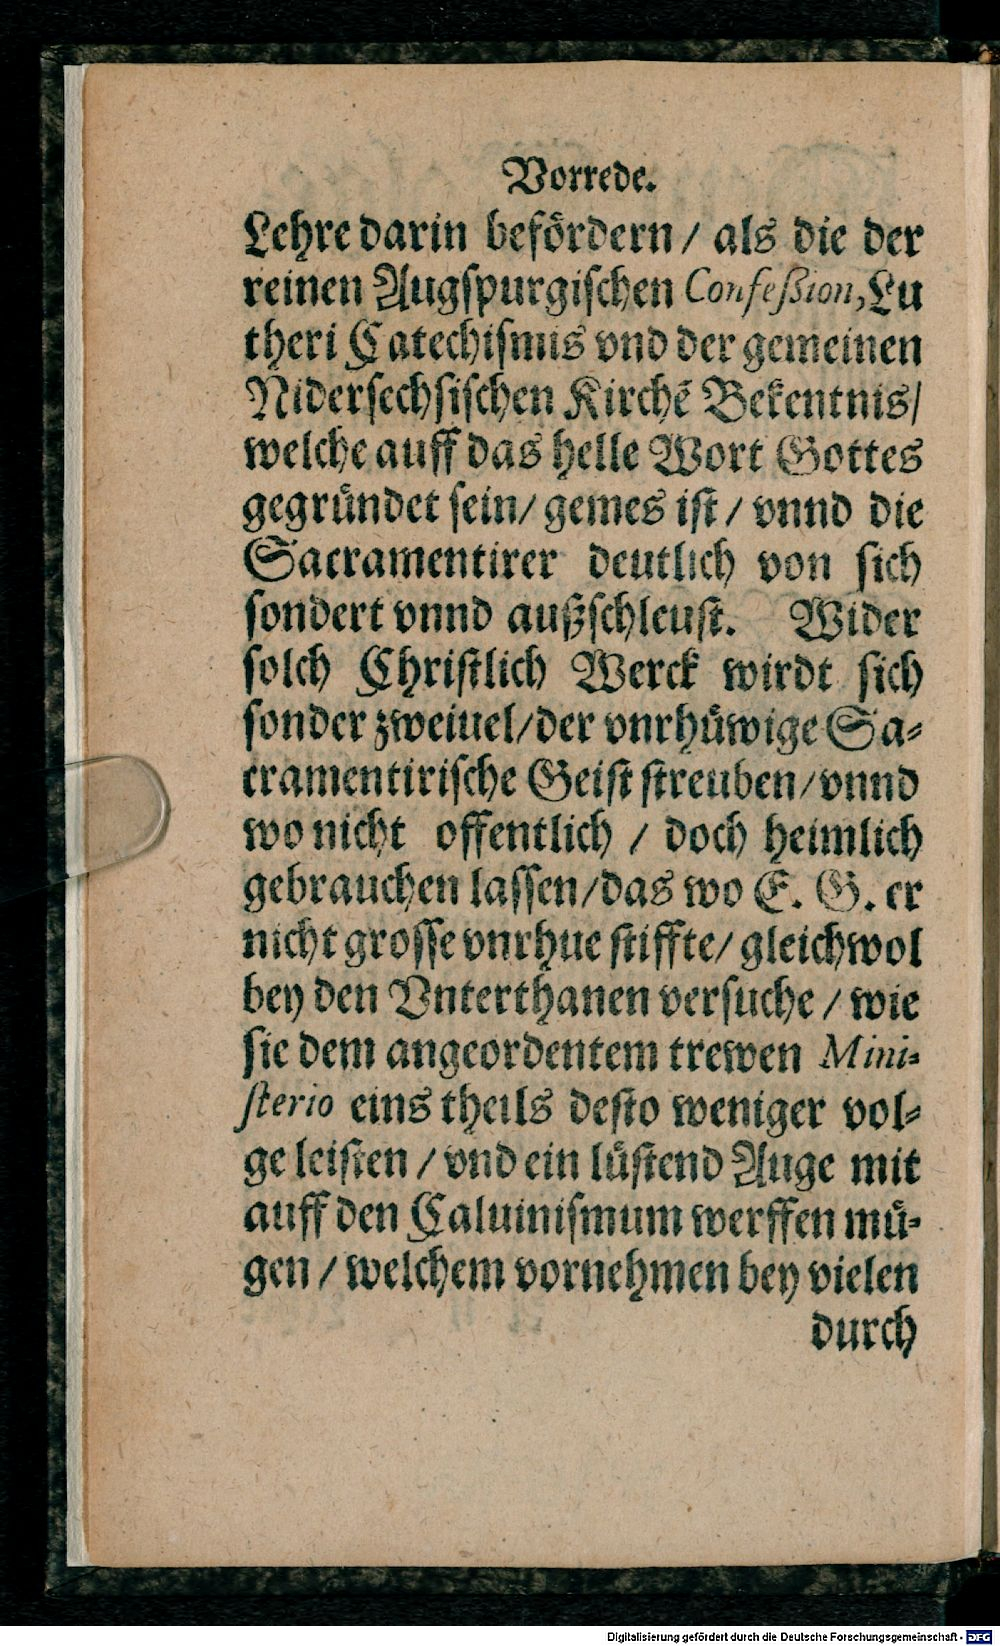 Vorrede.
Lehre darin befördern / als die der
reinen Augſpurgiſchen Confeßion, Lu
theri Catechiſmus vnd der gemeinen
Niderſechſiſchen Kirchē Bekentnis /
welche auff das helle Wort Gottes
gegründet ſein / gemes iſt / vnnd die
Sacramentirer deutlich von ſich
ſondert vnnd außſchleuſt. Wider
ſolch Chriſtlich Werck wirdt ſich
ſonder zweiuel / der vnrhüwige Sa⸗
cramentiriſche Geiſt ſtreuben / vnnd
wo nicht offentlich / doch heimlich
gebrauchen laſſen / das wo E. G. er
nicht groſſe vnrhue ſtiffte / gleichwol
bey den Vnterthanen verſuche / wie
ſie dem angeordentem trewen Mini⸗
ſterio eins theils deſto weniger vol⸗
ge leiſten / vnd ein lüſtend Auge mit
auff den Caluiniſmum werffen mü⸗
gen / welchem vornehmen bey vielen
durch
Digitalisierung gefördert durch die Deutsche Forschungsgemeinschaft - DFG